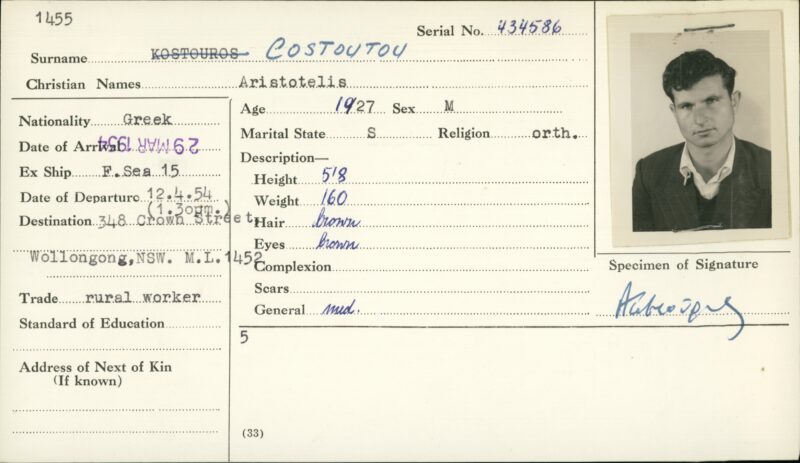 1455
Serial No. 434586
Surname KOSTOUROS COSTOUTOU
Christian Names Aristotelis
Nationality Greek
Date of Arrival 29 MAR 1954
Ex Ship F.Sea 15
Date of Departure 12.4.54
(1.30pm.)
Destination 348 Crown Street,
Wollongong,NSW. M.L.1452
Trade rural worker
Standard of Education
Address of Next of Kin
(If known)
Age 1927 Sex M
Marital State S Religion orth.
Description—
Height 5'8
Weight 160
Hair brown
Eyes brown
Complexion
Scars
General med.
5
(33)
Specimen of Signature